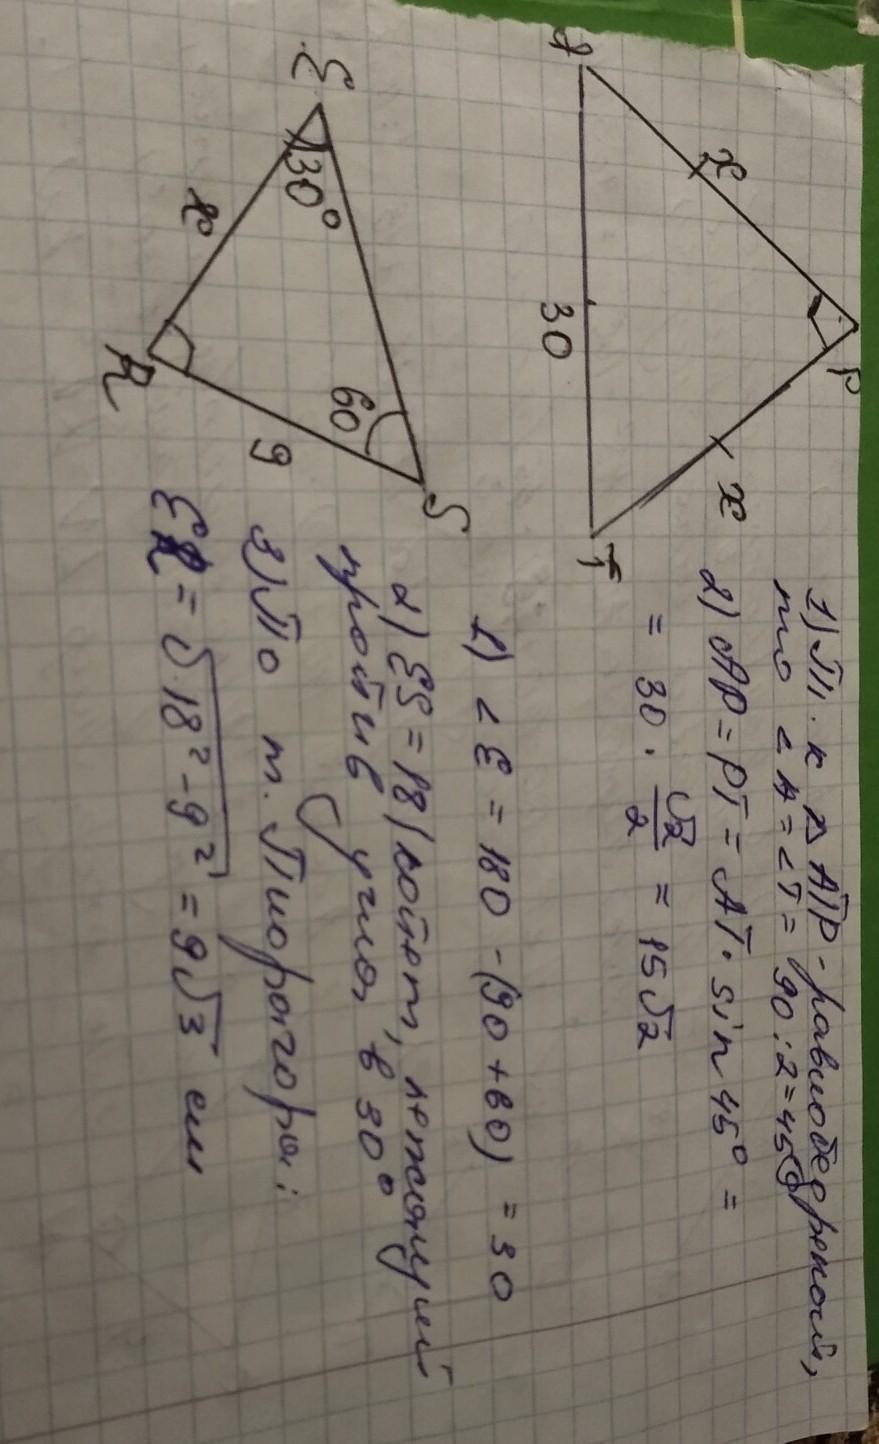 P
x x
A 30 T
1) Т. к △ATP - равнобедренный,
то ∠A = ∠T = 90 : 2 = 45°
2) AP = PT = AT · sin 45° =
= 30 · √2/2 = 15√2
E 30° 60 S
x 9
R
1) ∠E = 180 - (90 + 60) = 30
2) ES = 18 (катет, лежащий
против угла в 30°
3) По т. Пифагора:
ER = √18² - 9² = 9√3 см